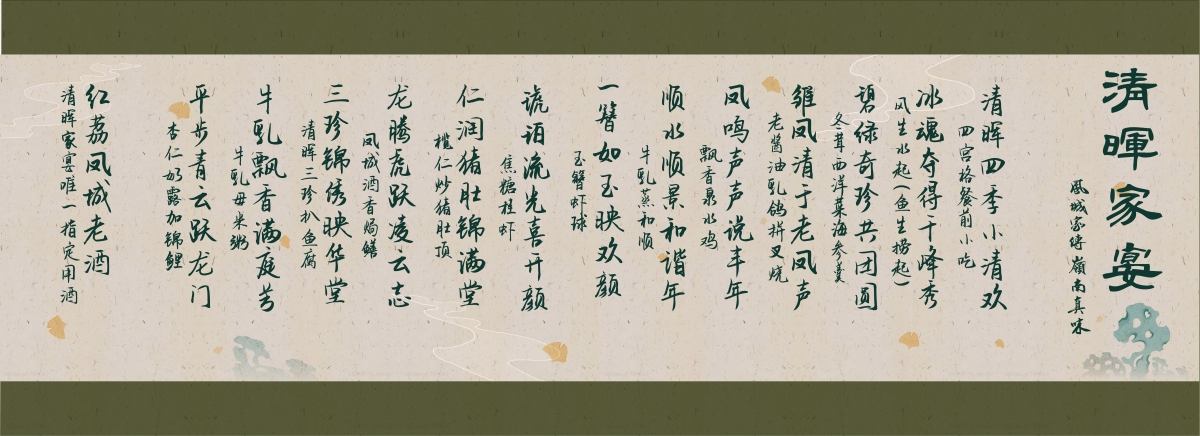 清暉家宴
鳳城家傳嶺南真味
清晖四季小清欢
四宫格餐前小吃
冰魂夺得千峰秀
风生水起(鱼生捞起)
碧绿奇珍共团圆
冬茸西洋菜海参羹
雏凤清于老凤声
老酱油乳鸽拼叉烧
凤鸣声声说丰年
飘香泉水鸡
顺水顺景和谐年
牛乳蒸和顺
一簪如玉映欢颜
玉簪虾球
琥珀流光喜开颜
焦糖桂虾
仁润猪肚锦满堂
榄仁炒猪肚顶
龙腾虎跃凌云志
凤城酒香焗鳝
三珍锦绣映华堂
清晖三珍扒鱼腐
牛乳飘香满庭芳
牛乳毋米粥
平步青云跃龙门
杏仁奶露加锦鲤
红荔凤城老酒
清晖家宴唯一指定用酒